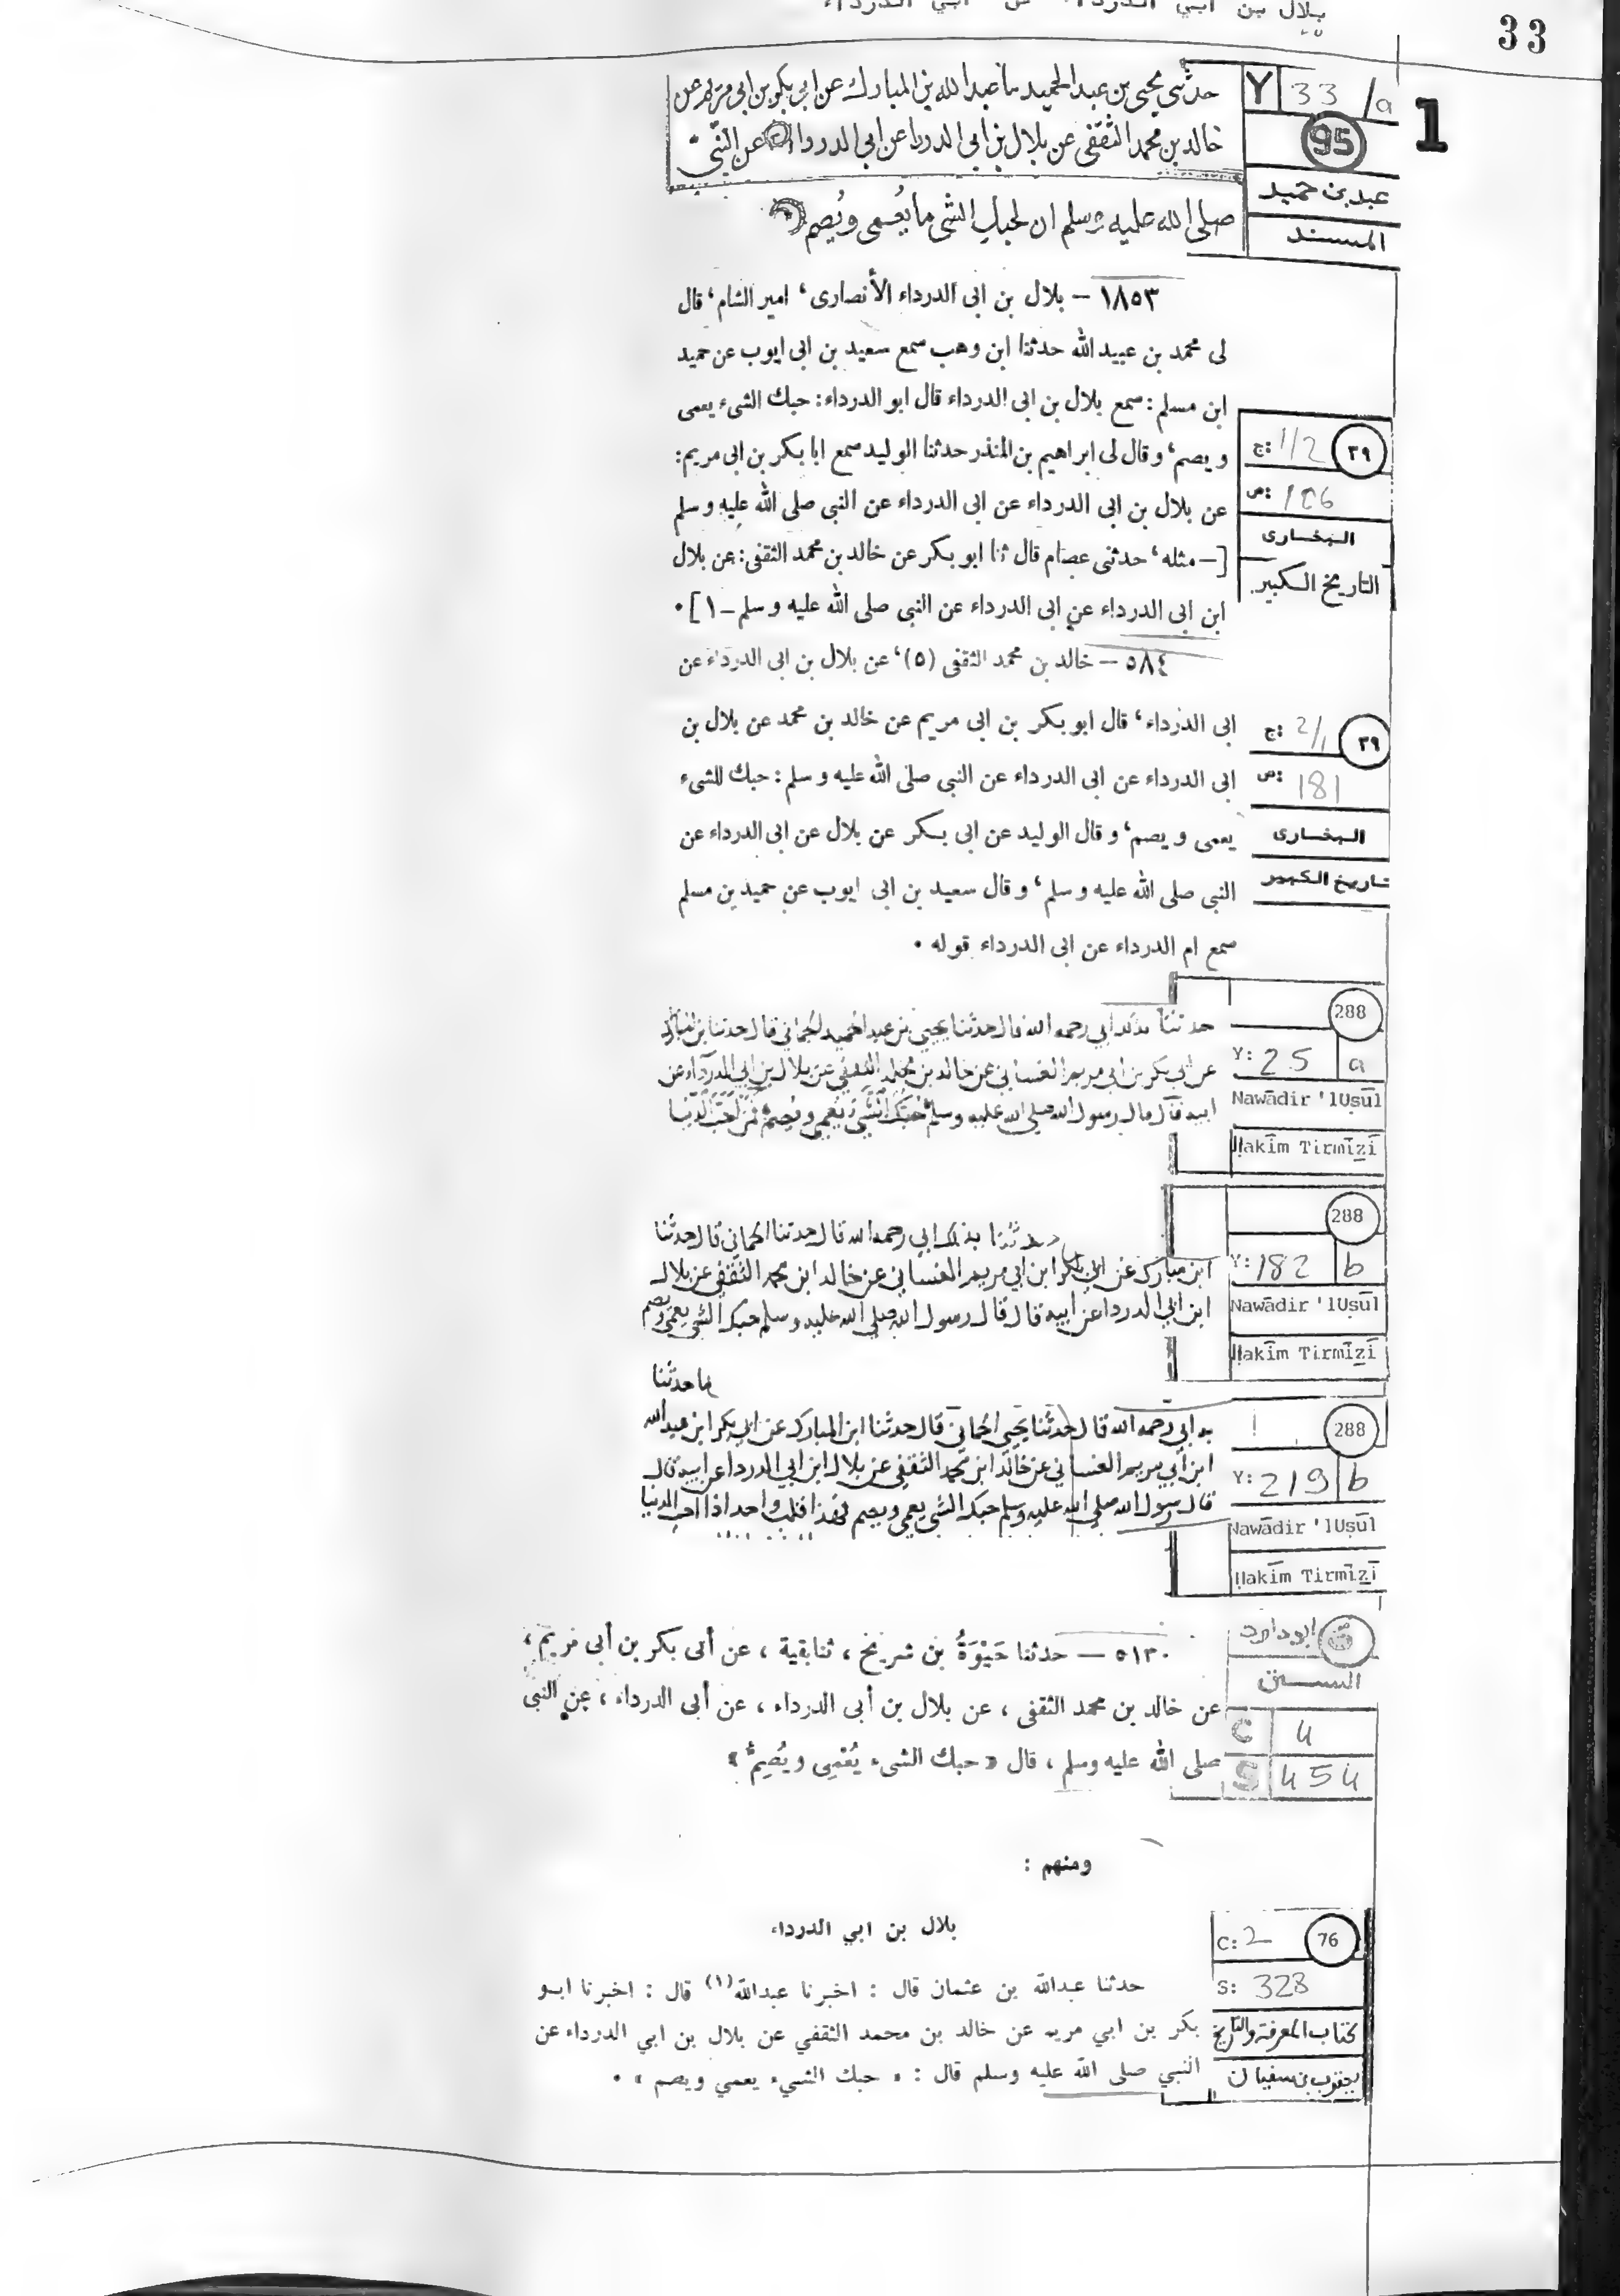 بلال بن ابي الدرداء عن ابي الدرداء
33
حدثني يحيى بن عبد الحميد نا عبد الله بن المبارك عن ابي بكر بن ابي مريم عن
خالد بن محمد الثقفى عن بلال بن ابى الدرداء عن ابي الدرداء عن النبي
صلى الله عليه وسلم ان لحبك الشى ما يُعمى ويُصم
Y 33 /a
1
95
عبد بن حميد
المسند
١٨٥٣ – بلال بن ابى الدرداء الأنصارى، امير الشام، قال
لى محمد بن عبيد الله حدثنا ابن وهب سمع سعيد بن ابى ايوب عن حميد
ابن مسلم: سمع بلال بن ابى الدرداء قال ابو الدرداء: حبك الشىء يعمى
و يصم، و قال لى ابراهيم بن المنذر حدثنا الوليد سمع ابا بكر بن ابى مريم:
عن بلال بن ابى الدرداء عن ابى الدرداء عن النبى صلى الله عليه و سلم
[– مثله، حدثنى عصام قال ثنا ابو بكر عن خالد بن محمد الثقفى: عن بلال
ابن ابى الدرداء عن ابى الدرداء عن النبى صلى الله عليه و سلم –١] ٠
ج: 1/2 ٣٩
ص: 106
البخارى
التاريخ الكبير
٥٨٤ – خالد بن محمد الثقفى (٥)، عن بلال بن ابى الدرداء عن
ابى الدرداء، قال ابو بكر بن ابى مريم عن خالد بن محمد عن بلال بن
ابى الدرداء عن ابى الدرداء عن النبى صلى الله عليه و سلم: حبك للشىء
يعمى و يصم، و قال الوليد عن ابى بكر عن بلال عن ابى الدرداء عن
النبى صلى الله عليه و سلم، و قال سعيد بن ابى ايوب عن حميد بن مسلم
سمع ام الدرداء عن ابى الدرداء قوله ٠
ج: 2/1 ٣٩
ص: 181
البخارى
تاريخ الكبير
حدثنا بذلك ابي رحمه الله قال حدثنا يحيى بن عبد الحميد الحماني قال حدثنا ابن المبارك
عن ابي بكر بن ابي مريم الغساني عن خالد بن محمد الثقفي عن بلال بن ابي الدرداء عن
ابيه قال قال رسول الله صلى الله عليه وسلم حبك الشي يعمي ويصم فمن احب الدنيا
288
Y: 25 a
Nawādir 'lUṣūl
Ḥakīm Tirmīzī
حدثنا بذلك ابي رحمه الله قال حدثنا الحماني قال حدثنا
ابن مبارك عن ابي بكر ابن ابي مريم الغساني عن خالد ابن محمد الثقفي عن بلال
ابن ابي الدرداء عن ابيه قال قال رسول الله صلى الله عليه وسلم حبك الشي يعمي ويصم
288
Y: 182 b
Nawādir 'lUṣūl
Ḥakīm Tirmīzī
حدثنا
به ابي رحمه الله قال حدثنا يحيى الحماني قال حدثنا ابن المبارك عن ابي بكر ابن عبد الله
ابن ابي مريم الغساني عن خالد ابن محمد الثقفي عن بلال ابن ابي الدرداء عن ابيه قال
قال رسول الله صلى الله عليه وسلم حبك الشي يعمي ويصم فهذا قلب واحد اذا احب الدنيا
288
Y: 219 b
Nawādir 'lUṣūl
Ḥakīm Tirmīzī
٥١٣٠ — حدثنا حَيْوَةُ بن شريح ، ثنا بقية ، عن أبى بكر بن أبى مريم ،
عن خالد بن محمد الثقفى ، عن بلال بن أبى الدرداء ، عن أبى الدرداء ، عن النبى
صلى الله عليه وسلم ، قال « حبك الشىء يُعْمِى ويُصِمُّ »
ابو داود
السنن
C 4
S 454
ومنهم :
بلال بن ابي الدرداء
حدثنا عبدالله بن عثمان قال : اخبرنا عبدالله(١) قال : اخبرنا ابو
بكر بن ابي مريم عن خالد بن محمد الثقفي عن بلال بن ابي الدرداء عن
النبي صلى الله عليه وسلم قال : « حبك الشيء يعمي ويصم » .
C: 2 76
S: 328
كتاب المعرفة والتاريخ
يعقوب بن سفيان